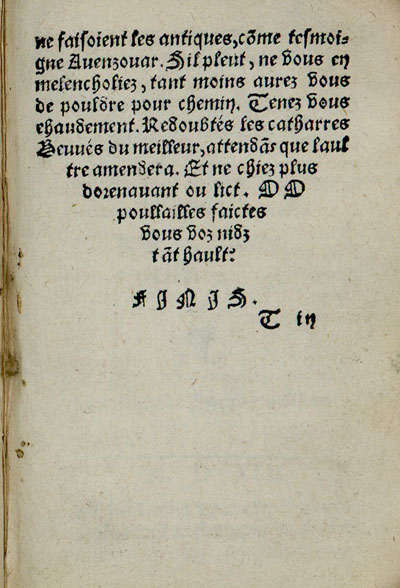 ne faisoient les antiques, cõme tesmoi-
gne Auenzouar. Sil pleut, ne vous en
melencholiez, tant moins aurez vous
de pouldre pour chemin. Tenez vous
chaudement. Redoubtés les catharres
Beuués du meilleur, attendãs que laul
tre amendera. Et ne chiez plus
dorenauant ou lict. O O
poullailles faictes
vous voz nidz
tãt hault?
FINIS.
T in